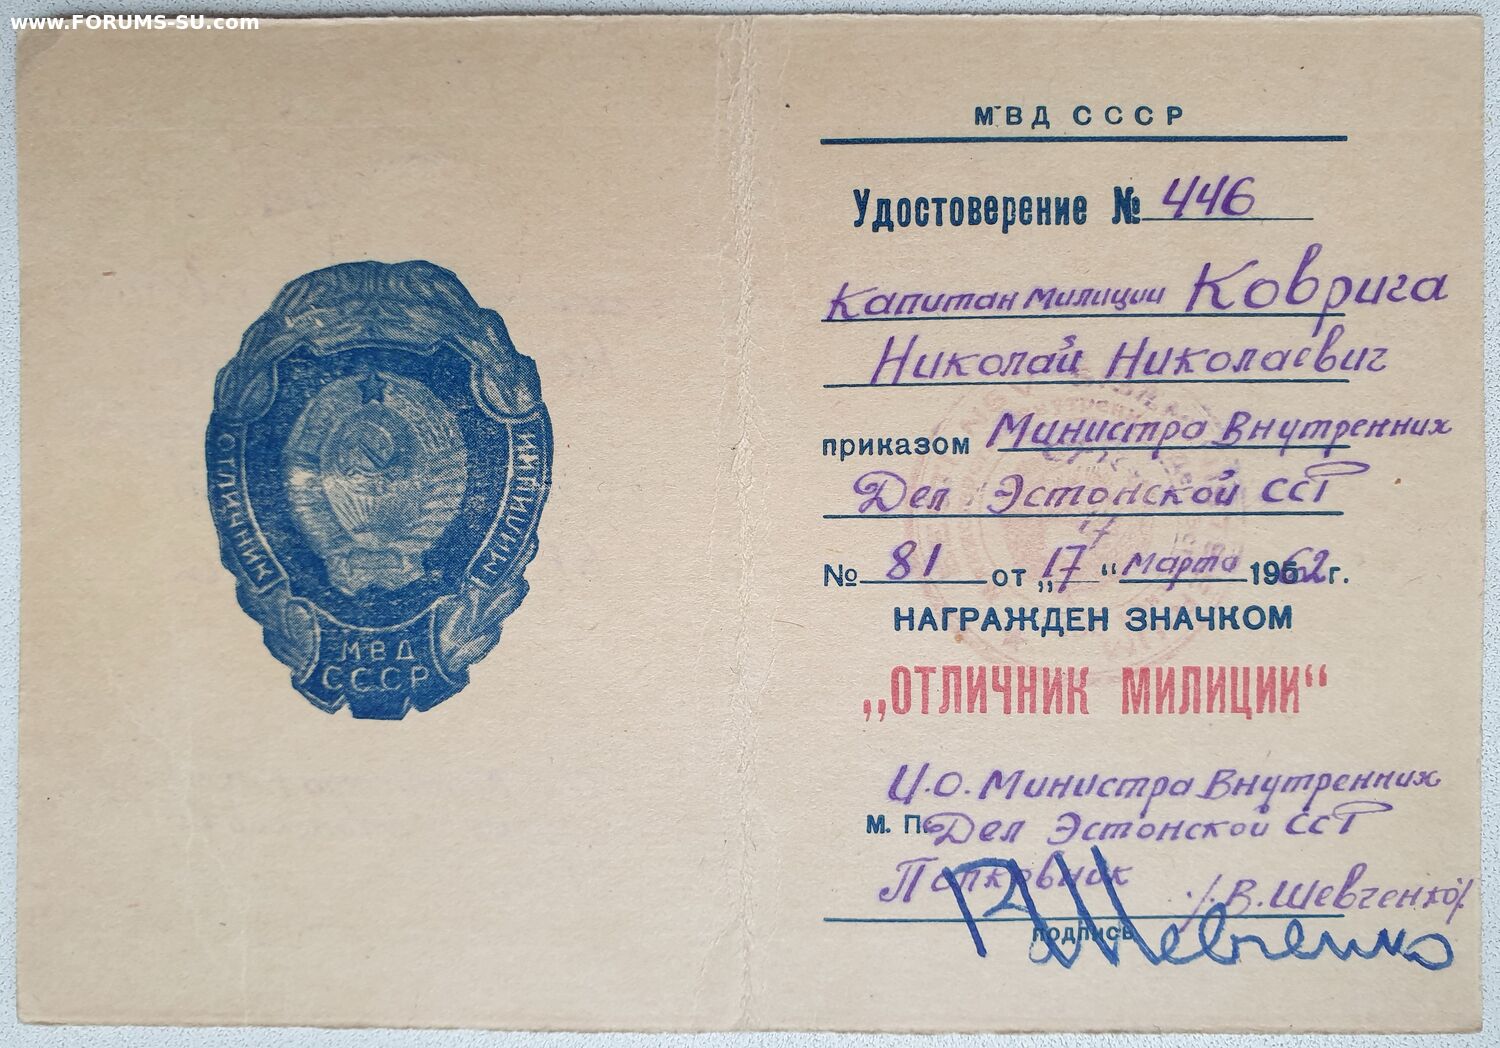 www.FORUMS-SU.com
ОТЛИЧНИК
МИЛИЦИИ
МВД
СССР
МВД СССР
Удостоверение № 446
Капитан милиции Коврига
Николай Николаевич
приказом Министра Внутренних
Дел Эстонской ССР
№ 81 от „17" марта 1962 г.
НАГРАЖДЕН ЗНАЧКОМ
„ОТЛИЧНИК МИЛИЦИИ"
И.О. Министра Внутренних
М. П. Дел Эстонской ССР
Полковник /В. Шевченко/
подпись